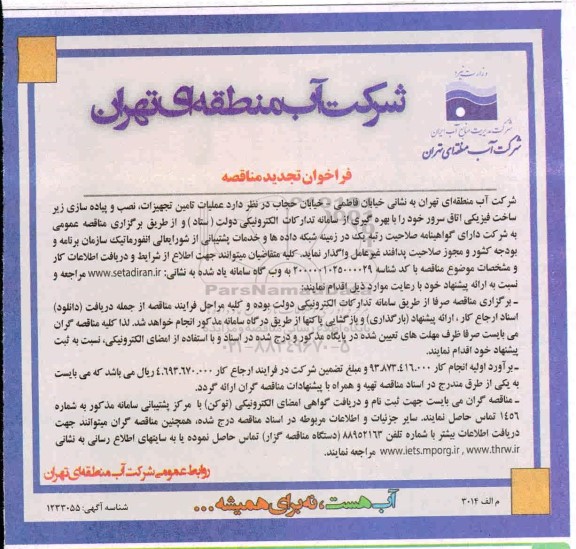 وزارت نیرو
شرکت مدیریت منابع آب ایران
شرکت آب منطقه‌ای تهران
شرکت آب منطقه‌ای تهران
فراخوان تجدید مناقصه
شرکت آب منطقه‌ای تهران به نشانی خیابان فاطمی - خیابان حجاب در نظر دارد عملیات تامین تجهیزات، نصب و پیاده سازی زیر
ساخت فیزیکی اتاق سرور خود را با بهره گیری از سامانه تدارکات الکترونیکی دولت (ستاد) و از طریق برگزاری مناقصه عمومی
به شرکت دارای گواهینامه صلاحیت رتبه یک در زمینه شبکه داده ها و خدمات پشتیبانی از شورایعالی انفورماتیک سازمان برنامه و
بودجه کشور و مجوز صلاحیت پدافند غیرعامل واگذار نماید. کلیه متقاضیان میتوانند جهت اطلاع از شرایط و دریافت اطلاعات کار
و مشخصات موضوع مناقصه با کد شناسه ۲۰۰۰۰۰۱۰۲۵۰۰۰۰۲۹ به وب گاه سامانه یاد شده به نشانی: www.setadiran.ir مراجعه و
نسبت به ارائه پیشنهاد خود با رعایت موارد ذیل اقدام نمایند:
ـ برگزاری مناقصه صرفا از طریق سامانه تدارکات الکترونیکی دولت بوده و کلیه مراحل فرایند مناقصه از جمله دریافت (دانلود)
اسناد ارجاع کار، ارائه پیشنهاد (بارگذاری) و بازگشایی پاکتها از طریق درگاه سامانه مذکور انجام خواهد شد. لذا کلیه مناقصه گران
می بایست صرفا ظرف مهلت های تعیین شده در پایگاه مذکور و درج شده در اسناد و با استفاده از امضای الکترونیکی، نسبت به ثبت
پیشنهاد خود اقدام نمایند.
ـ برآورد اولیه انجام کار ۹۳،۸۷۳،۴۱۶،۰۰۰ و مبلغ تضمین شرکت در فرایند ارجاع کار ۴،۶۹۳،۶۷۰،۰۰۰ ریال می باشد که می بایست
به یکی از طرق مندرج در اسناد مناقصه تهیه و همراه با پیشنهادات مناقصه گران ارائه گردد.
ـ مناقصه گران می بایست جهت ثبت نام و دریافت گواهی امضای الکترونیکی (توکن) با مرکز پشتیبانی سامانه مذکور به شماره
۱۴۵۶ تماس حاصل نمایند. سایر جزئیات و اطلاعات مربوطه در اسناد مناقصه درج شده، همچنین مناقصه گران میتوانند جهت
دریافت اطلاعات بیشتر با شماره تلفن ۸۸۹۵۲۱۶۳ (دستگاه مناقصه گزار) تماس حاصل نموده یا به سایتهای اطلاع رسانی به نشانی
www.iets.mporg.ir , www.thrw.ir مراجعه نمایند.
روابط عمومی شرکت آب منطقه‌ای تهران
م الف ۳۰۱۴
آب هست، نه برای همیشه ...
شناسه آگهی: ۱۲۳۳۰۵۵
ParsNamadData
۰۲۱-۸۸۳۴۹۶۷۰-۵